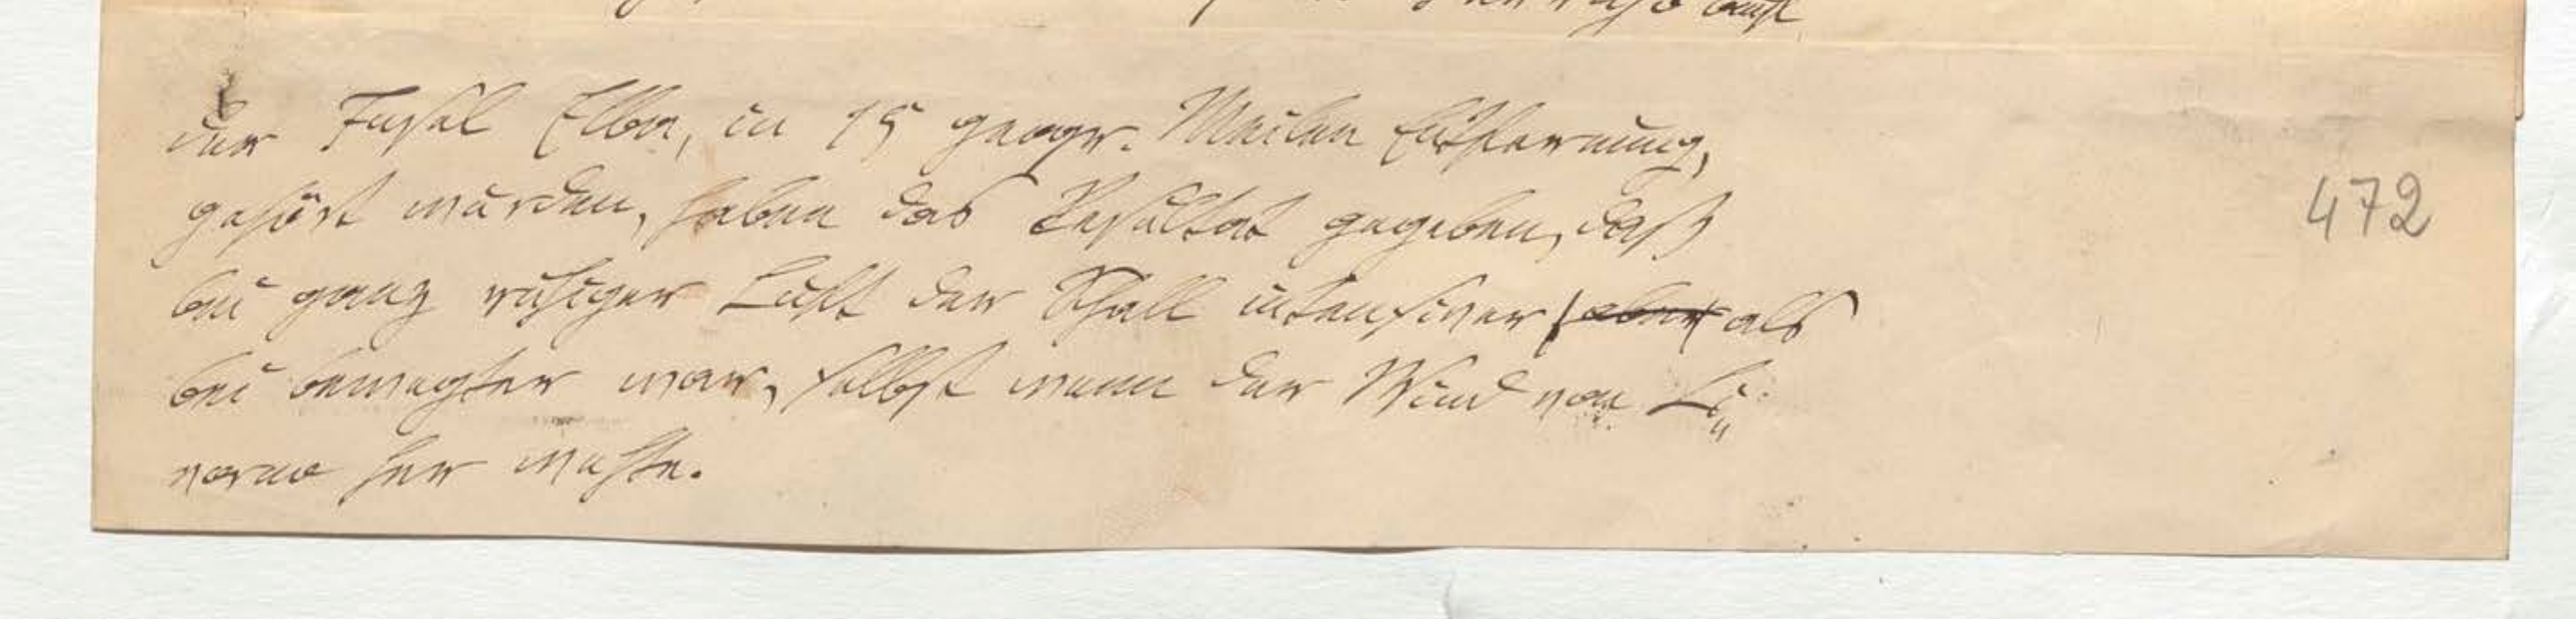 der Insel Elba, in 15 geogr. Meilen Entfernung,
gehört wurden, haben das Resultat gegeben, daß
bei ganz ruhiger Luft der Schall intensiver aber als
bei bewegter war, selbst wenn der Wind von Li-
vorno her wehte.
472